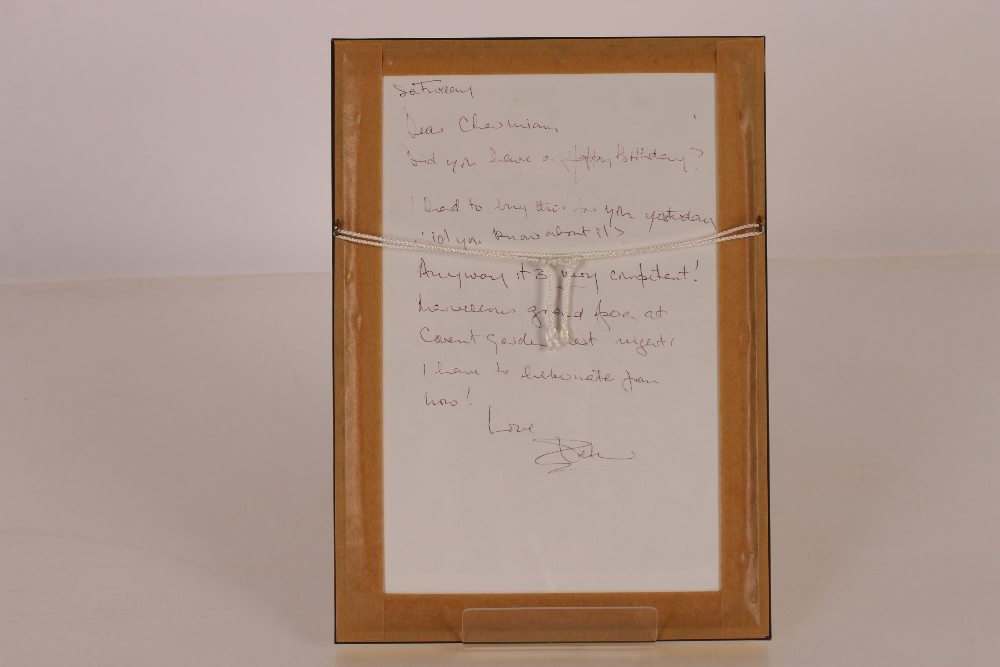 Saturday
Dear Charmian,
Did you have a happy Birthday?
I had to buy this for you yesterday
Did you know about it?
Anyway it is very competent!
Marvellous grand opera at
Covent Garden last night,
I have to hibernate from
now!
Love